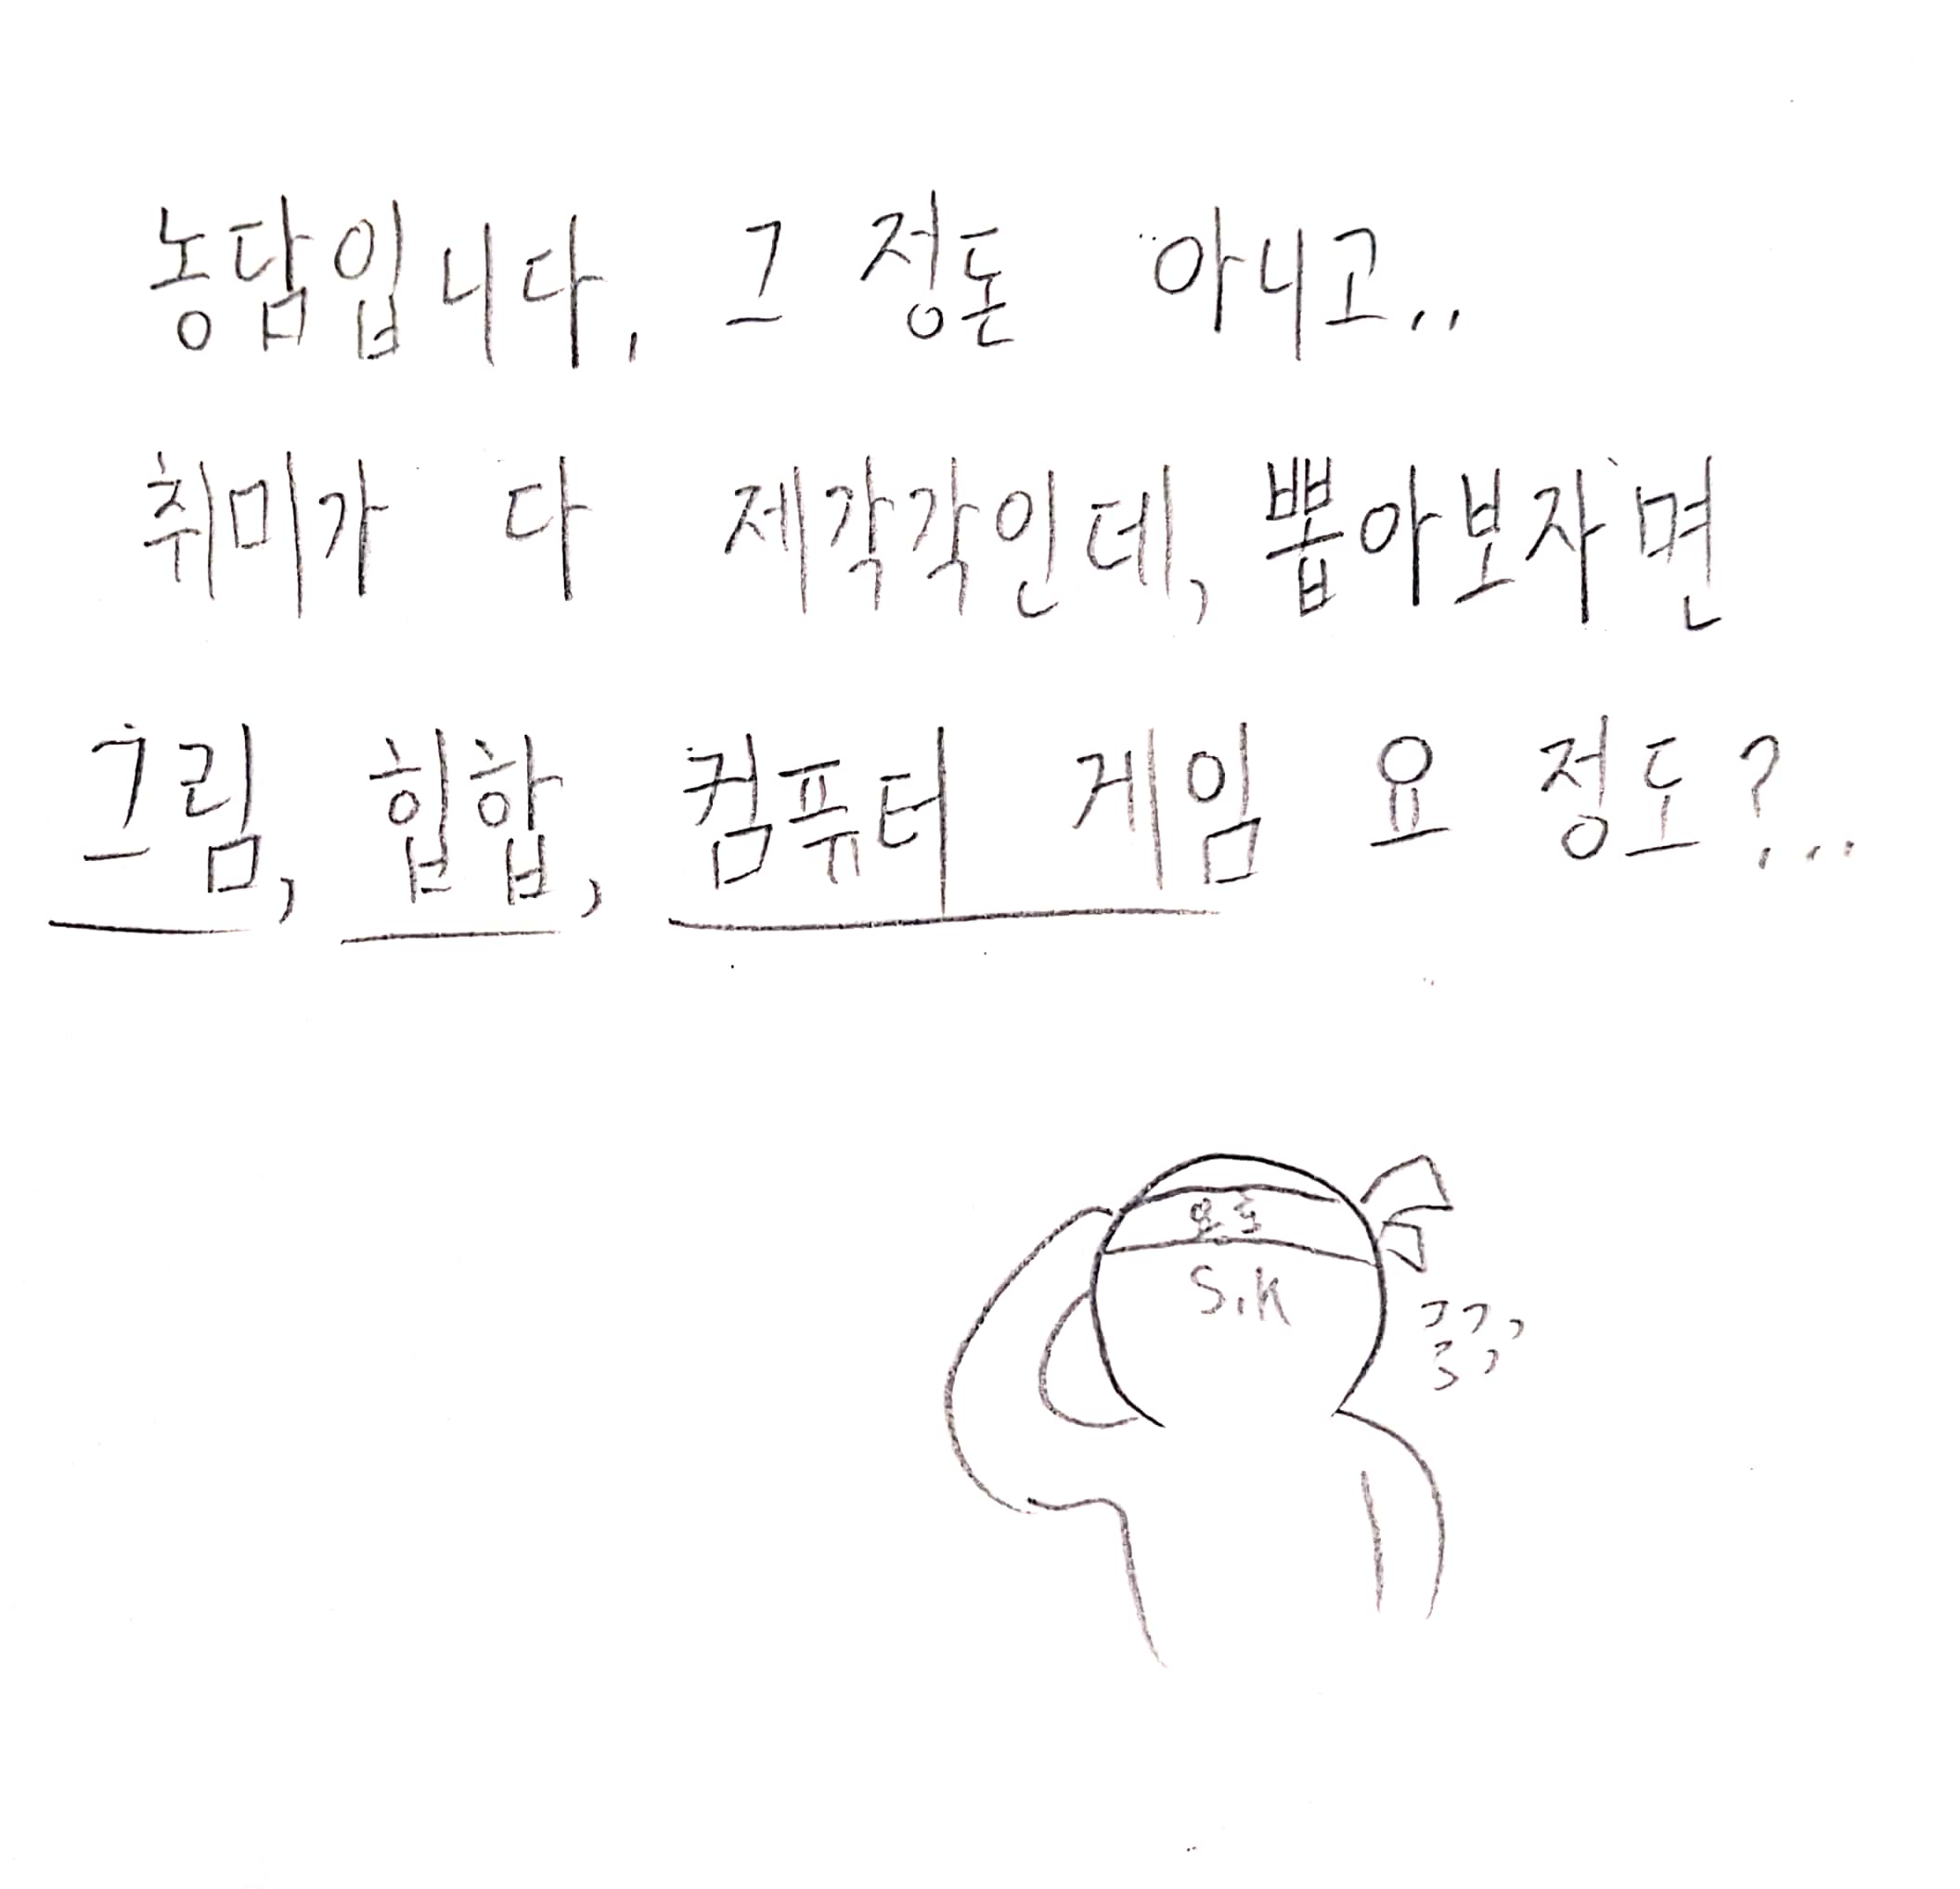 농담입니다, 그 정돈 아니고..
취미가 다 제각각인데, 뽑아보자면
그림, 힙합, 컴퓨터 게임 요 정도?...
S.K